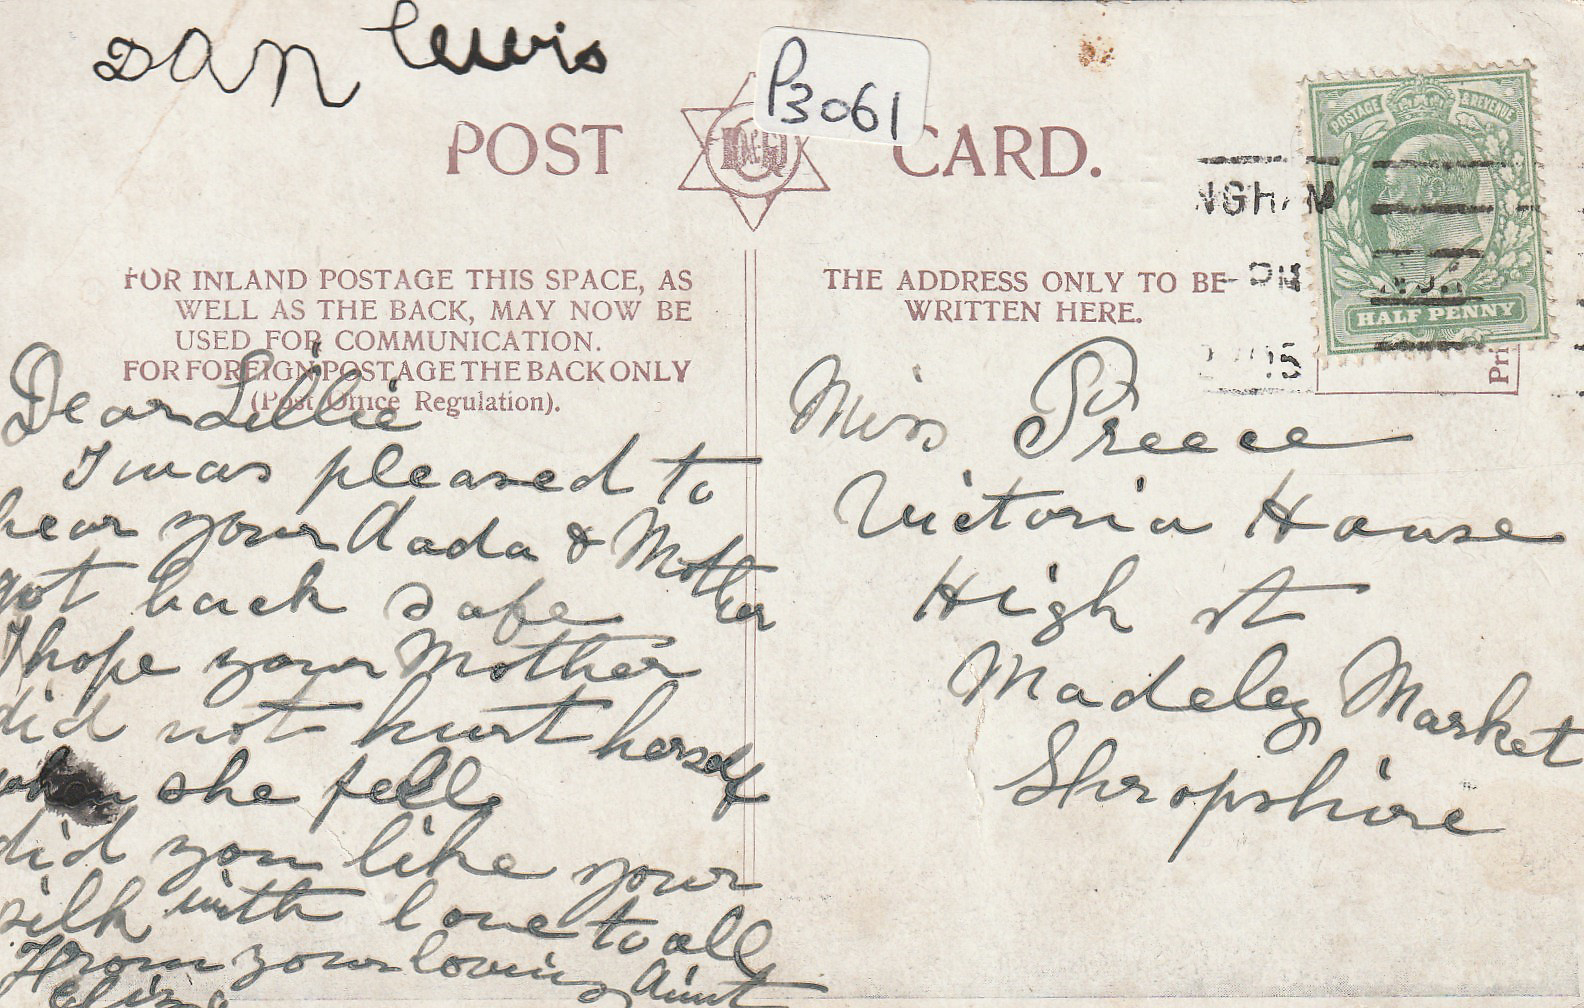 Dan Lewis
P3061
POST CARD.
POSTAGE & REVENUE
NGHAM
PM
15
HALF PENNY
FOR INLAND POSTAGE THIS SPACE, AS
WELL AS THE BACK, MAY NOW BE
USED FOR COMMUNICATION.
FOR FOREIGN POSTAGE THE BACK ONLY
(Post Office Regulation).
THE ADDRESS ONLY TO BE
WRITTEN HERE.
Pri
Dear Lillie
I was pleased to
hear your dada & Mother
got back safe
I hope your Mother
did not hurt herself
when she fell
did you like your
silk with love to all
From your loving Aunt
Eliza
Miss Preece
Victoria House
High st
Madeley Market
Shropshire